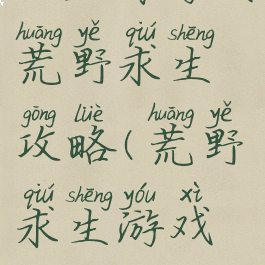 huāng yě qiú shēng
荒野求生
gōng lüè huāng yě
攻略(荒野
qiú shēng yóu xì
求生游戏